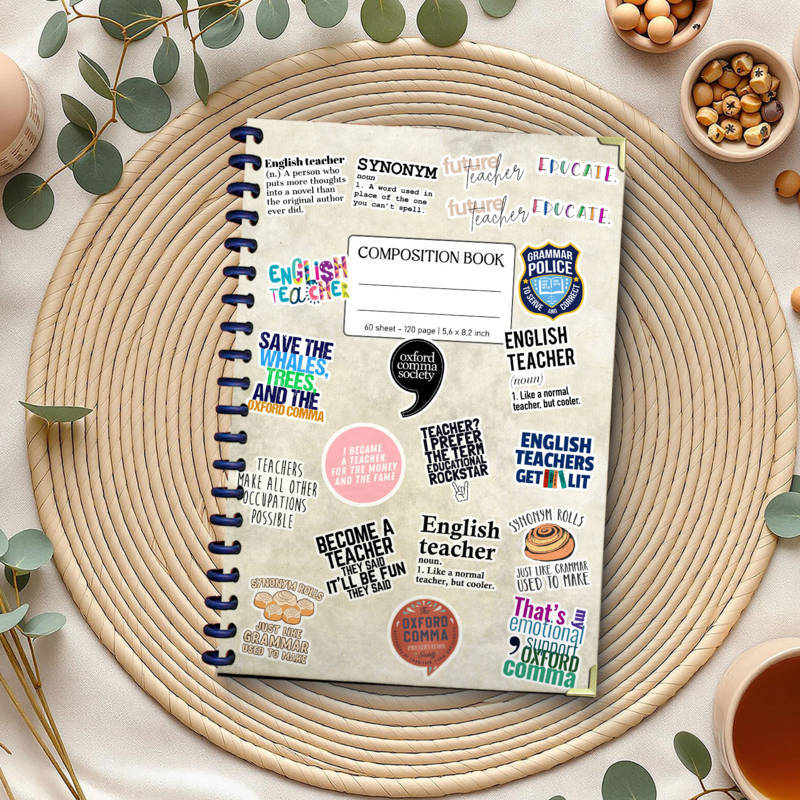 English teacher
(n.) A person who
puts more thoughts
into a novel than
the original author
ever did.
SYNONYM
noun
1. A word used in
place of the one
you can't spell.
future
teacher
EDUCATE.
future
teacher
EDUCATE.
COMPOSITION BOOK
60 sheet - 120 page | 5,6 x 8,2 inch
ENGLISH
TEACHER
GRAMMAR
POLICE
TO SERVE AND CORRECT
SAVE THE
WHALES,
TREES,
AND THE
OXFORD COMMA
oxford
comma
society
ENGLISH
TEACHER
(noun)
1. Like a normal
teacher, but cooler.
I BECAME
A TEACHER
FOR THE MONEY
AND THE FAME
TEACHER?
I PREFER
THE TERM
EDUCATIONAL
ROCKSTAR
ENGLISH
TEACHERS
GET LIT
TEACHERS
MAKE ALL OTHER
OCCUPATIONS
POSSIBLE
BECOME A
TEACHER
THEY SAID
IT'LL BE FUN
THEY SAID
English
teacher
noun.
1. Like a normal
teacher, but cooler.
SYNONYM ROLLS
JUST LIKE GRAMMAR
USED TO MAKE
SYNONYM ROLLS
JUST LIKE
GRAMMAR
USED TO MAKE
The
OXFORD
COMMA
PRESERVATION
Society
That's my
emotional
support
OXFORD
comma